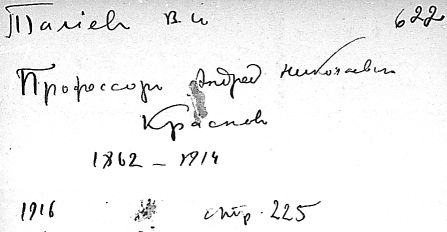 Талiев В И 622
Профессоръ Андрей Николаевич
Краснов
1862 – 1914
1916 стр. 225